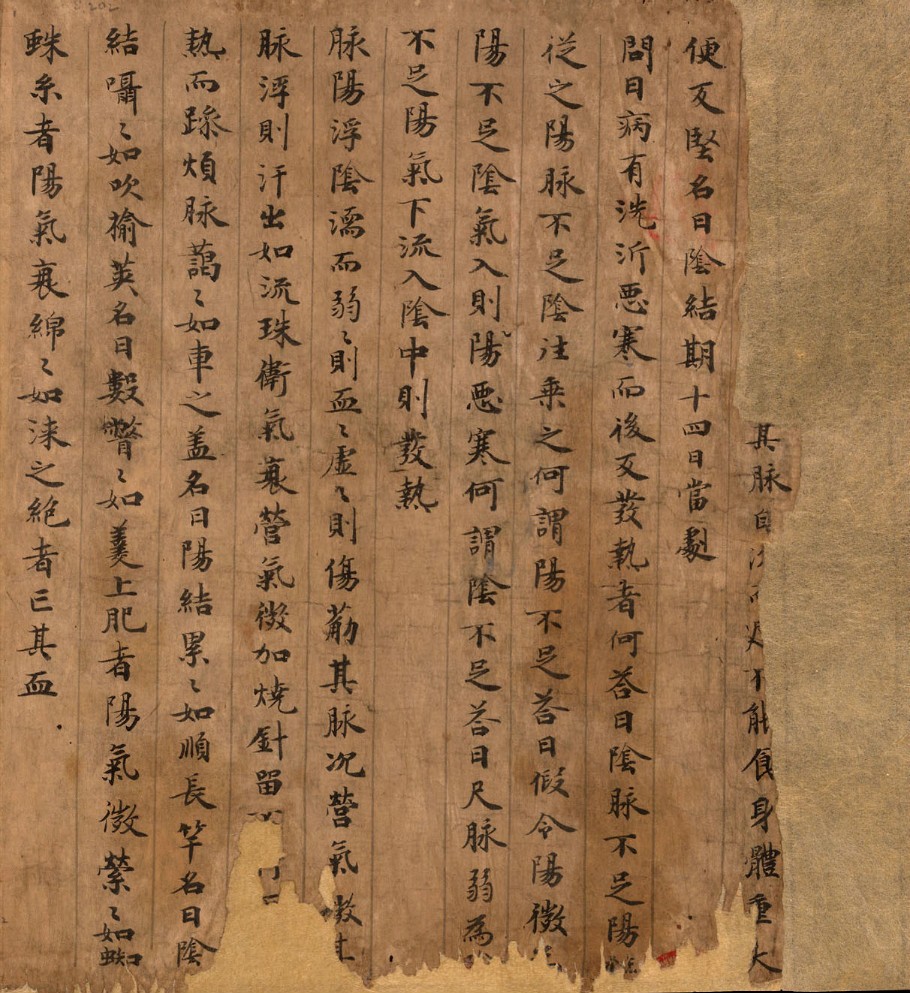 其脉自沉而遲不能食身體重大
便反堅名曰陰結期十四日當劇
問曰病有洗沂惡寒而後反發熱者何荅曰陰脉不足陽
從之陽脉不足陰注乘之何謂陽不足荅曰假令陽微
陽不足陰氣入則陽惡寒何謂陰不足荅曰尺脉弱為
不足陽氣下流入陰中則發熱
脉陽浮陰濡而弱〻則血〻虛〻則傷荕其脉沉營氣微
脉浮則汗出如流珠衛氣衰營氣微加燒針留
熱而躁煩脉藹〻如車之盖名曰陽結累〻如順長竿名曰陰
結囁〻如吹榆莢名曰數瞥〻如羹上肥者陽氣微縈〻如蜘
蛛糸者陽氣衰綿〻如淶之絶者亡其血